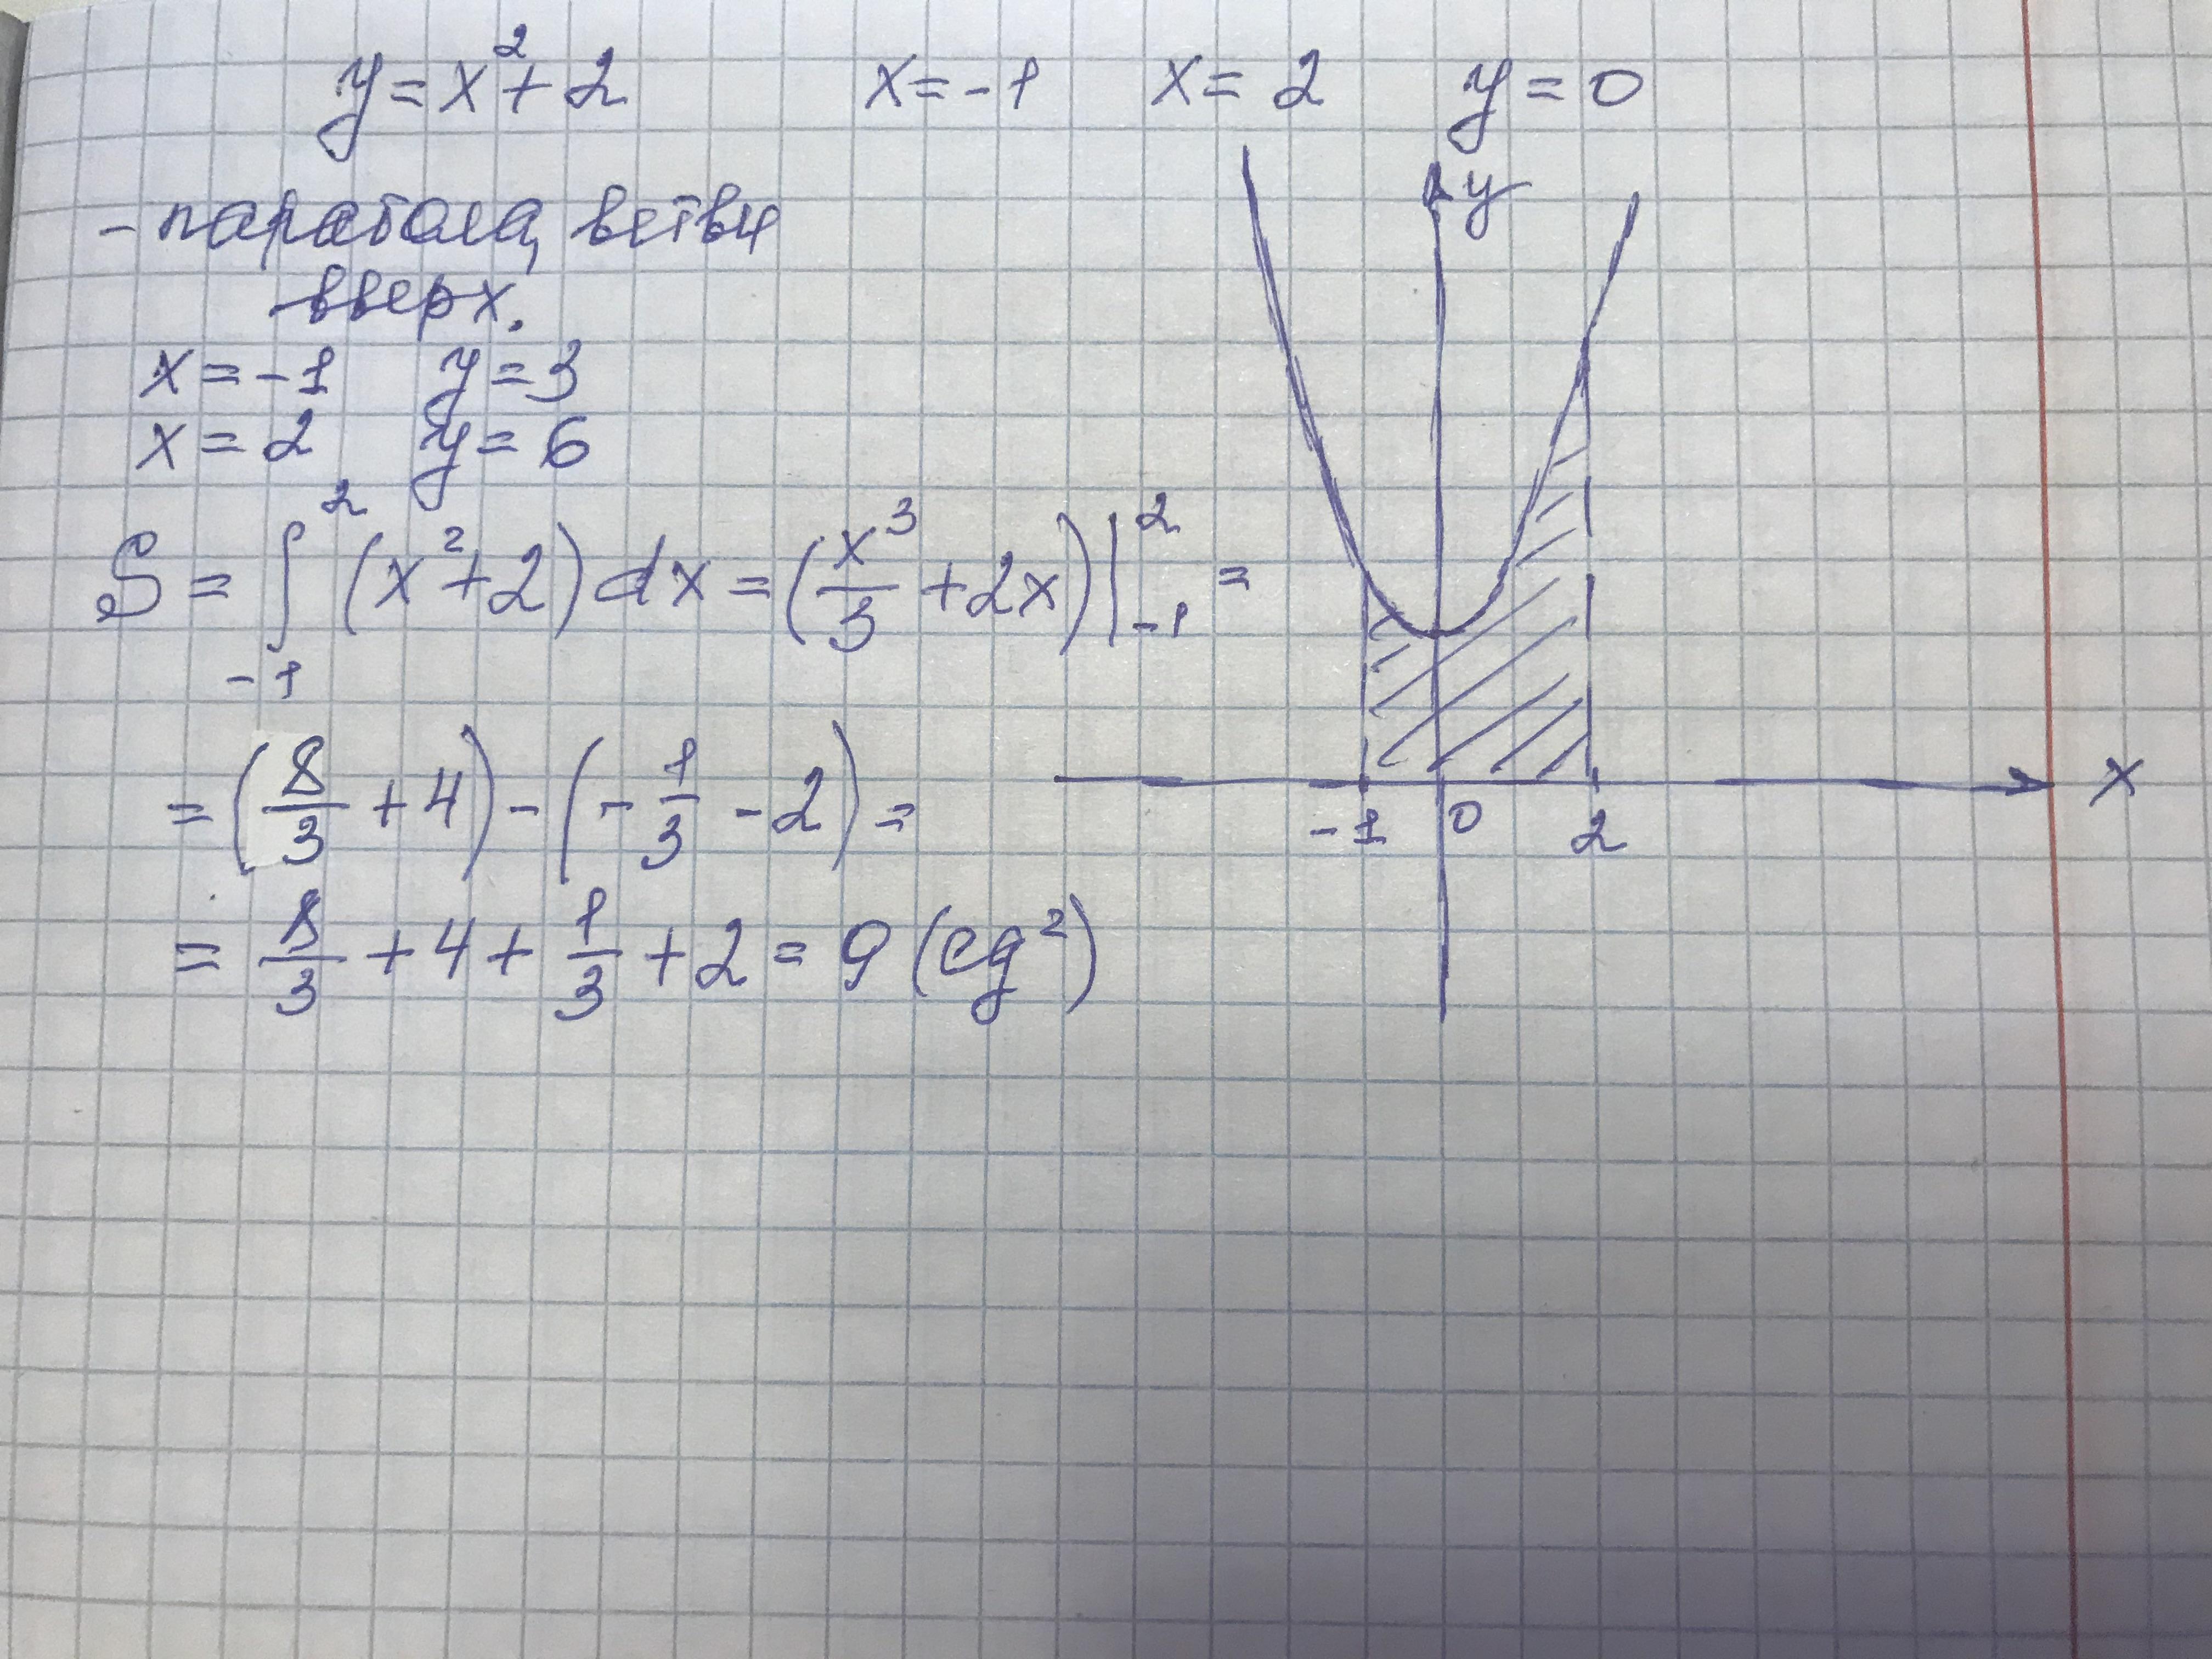 y = x² + 2 x = -1 x = 2 y = 0
- парабола, ветви
вверх.
x = -1 y = 3
x = 2 y = 6
S = ∫₋₁² (x² + 2) dx = (x³/3 + 2x) |₋₁² =
= (8/3 + 4) - (- 1/3 - 2) =
= 8/3 + 4 + 1/3 + 2 = 9 (ед²)
y
x
-1 0 2